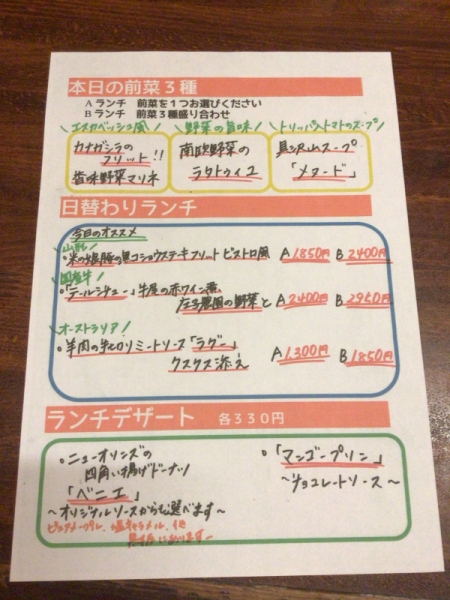 本日の前菜3種
Aランチ 前菜を1つお選びください
Bランチ 前菜3種盛り合わせ
\エスカベッシュ風/
カナガシラの
フリット!!
香味野菜マリネ
\野菜の旨味/
南欧野菜の
ラタトゥイユ
\トリッパ入トマトのスープ/
具沢山スープ
「メヌード」
日替わりランチ
今日のオススメ
\山形/
・米の娘豚の黒コショウステーキフリット ビストロ風 A1850円 B2400円
国産牛/
・「テールシチュー」牛尾の赤ワイン煮
農園の野菜と A2400円 B2950円
オーストラリア!
・羊肉の辛口ミートソース「ラグー」
クスクス添え A1300円 B1850円
ランチデザート 各330円
・ニューオリンズの
四角い揚げドーナツ
「ベニエ」
~オリジナルソースからも選べます~
ピュアメープル、塩キャラメル、他
・「マンゴープリン」
~チョコレートソース~